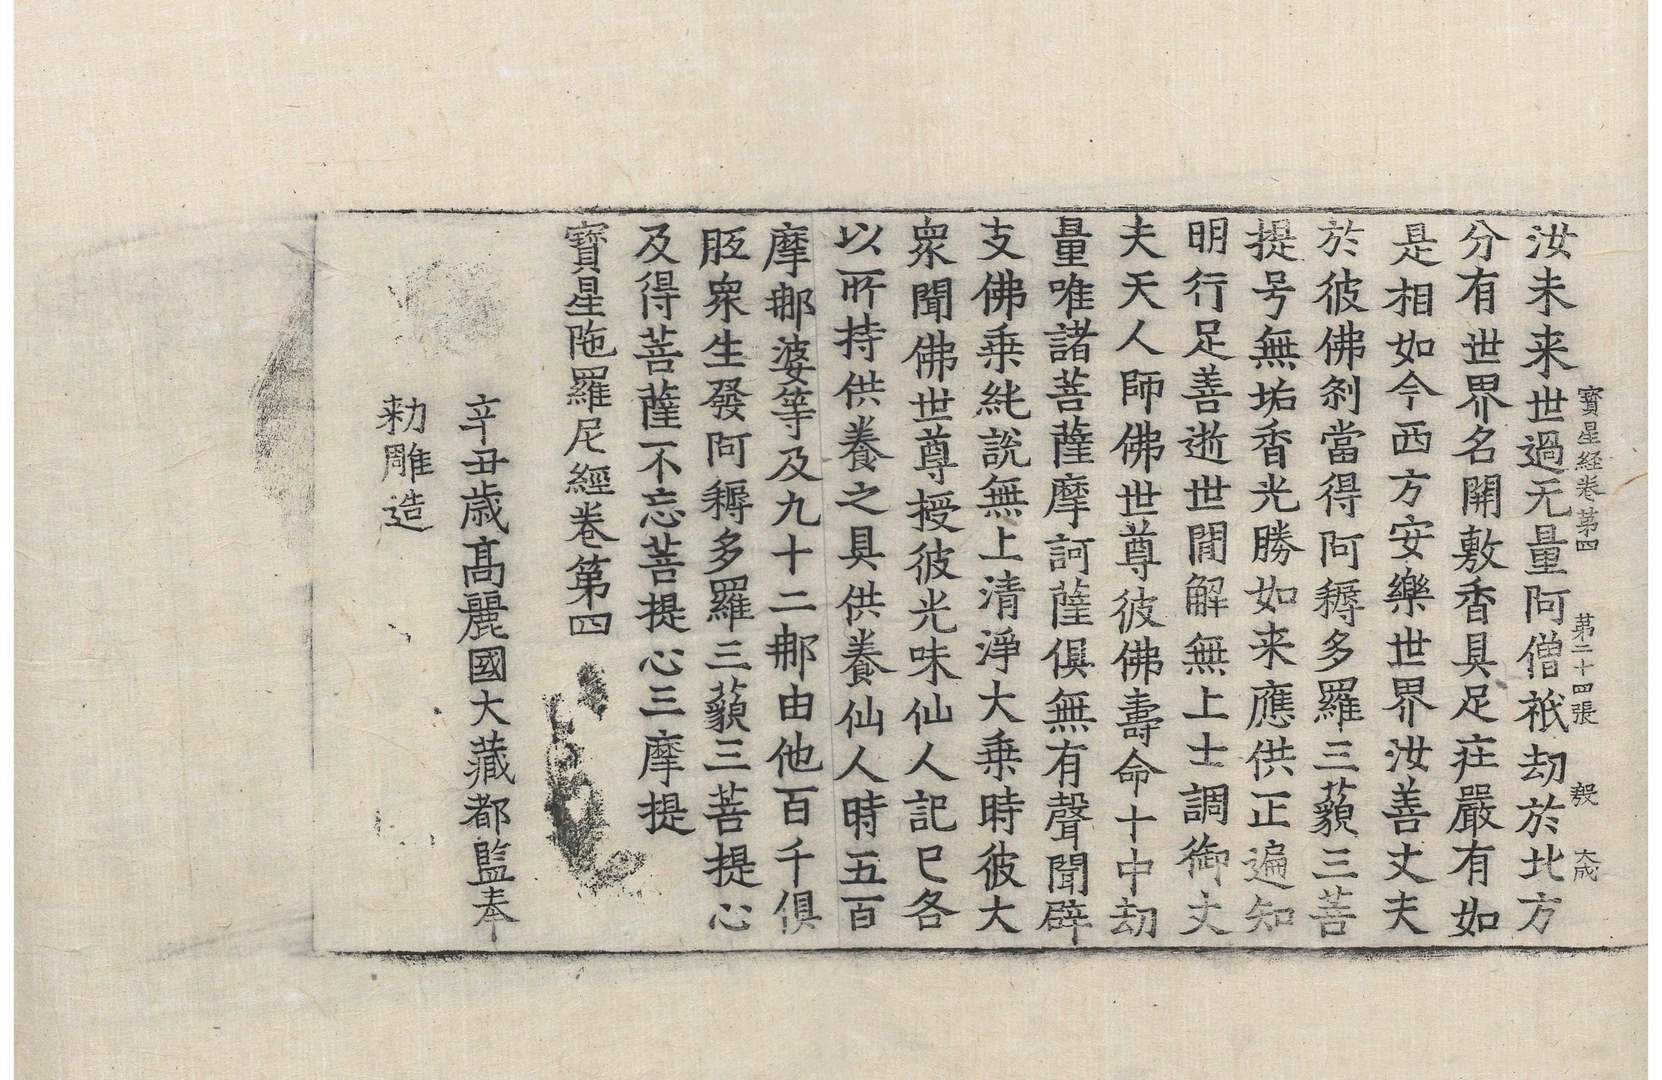 寳星経卷第四 第二十四張 毀 大成
汝未来世過无量阿僧祇劫於北方
分有世界名開敷香具足莊嚴有如
是相如今西方安樂世界汝善丈夫
於彼佛刹當得阿耨多羅三藐三菩
提号無垢香光勝如来應供正遍知
明行足善逝世閒解無上士調御丈
夫天人師佛世尊彼佛壽命十中劫
量唯諸菩薩摩訶薩俱無有聲聞辟
支佛乗純說無上清淨大乗時彼大
衆聞佛世尊授彼光味仙人記已各
以所持供養之具供養仙人時五百
摩那婆等及九十二那由他百千俱
胝衆生發阿耨多羅三藐三菩提心
及得菩薩不忘菩提心三摩提
寳星陁羅尼經卷第四
辛丑歳髙麗國大藏都監奉
勅雕造